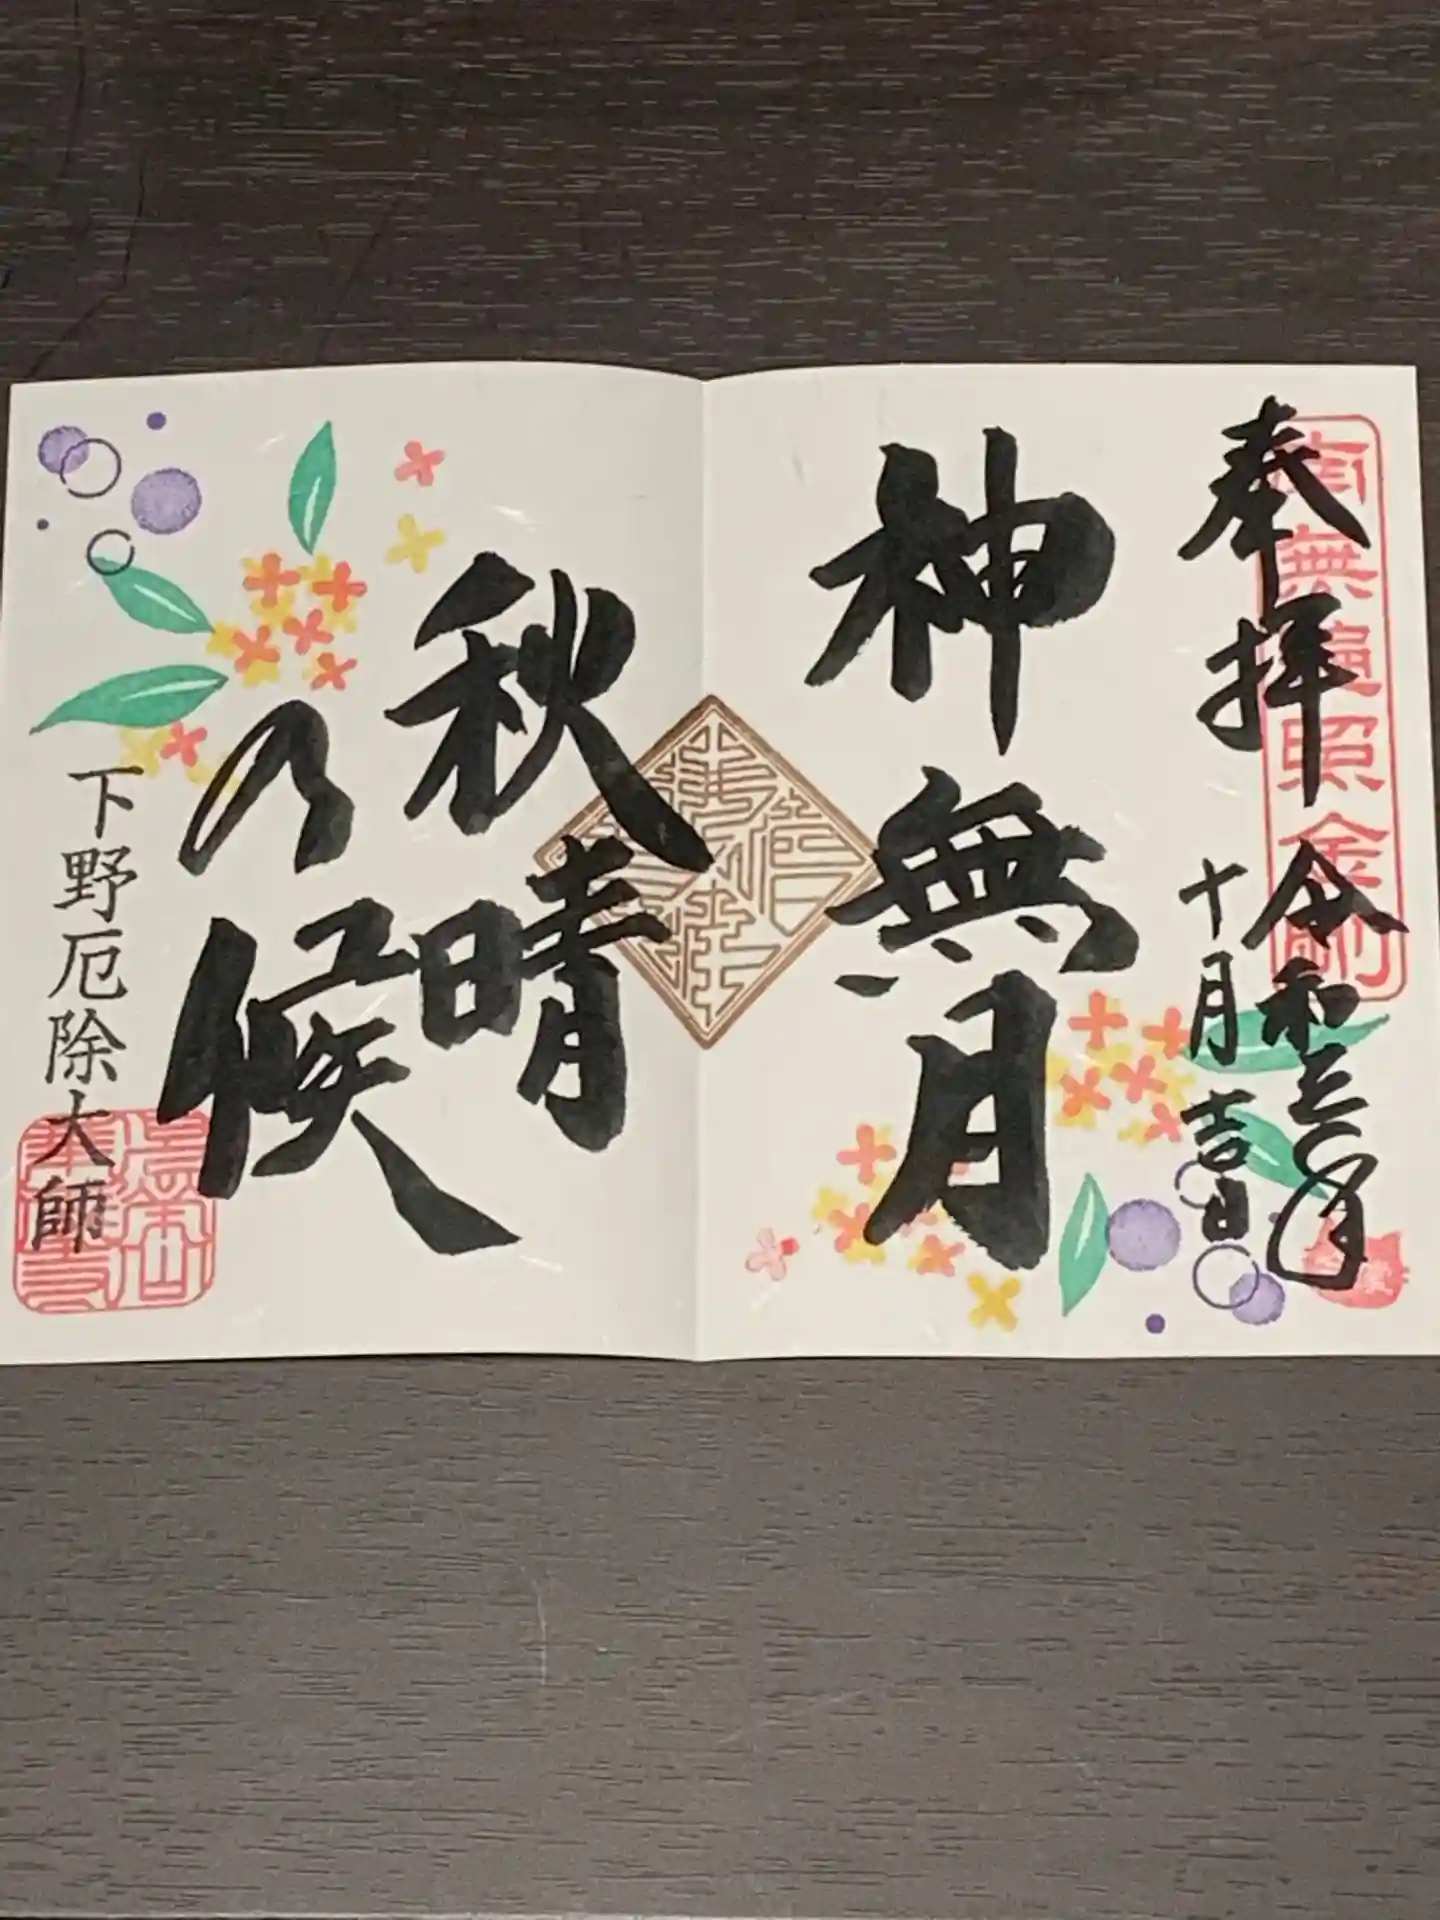 奉拝
南無遍照金剛
令和三年
十月吉日
神無月
秋晴
乃候
下野厄除大師